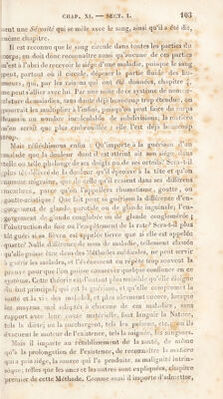 CHAP. XI. — SECT. I. 103
nent une Sérosité qui se mêle avec le sang, ainsi qu'il a été dit,
même chapitre.
Il est reconnu que le sang circule dans toutes les parties du
corps; on doit donc reconnaître aussi qu'aucune de ces parties
n'est à l'abri de recevoir le siége d'une maladie, puisque le sang
peut, partout où il circule, déposer la partie fluide des humeurs
qui, par les raisons qui ont été données, chapitre
ne peut s'allier avec lui. Par une suite de ce système de nomenclature
des maladies, sans doute déjà beaucoup trop étendue, on
pourrait les multiplier à l'infini, puisqu'on peut faire du corps
humain un nombre incalculable de subdivisions; la matière
n'en serait que plus embrouillée; elle l'est déjà beaucoup
trop.
Mais réfléchissons enfin. Qu'importe à la guérison d'un
malade que la douleur dont il est atteint ait son siége
telle ou telle phalange de ses doigts ou de ses orteils? Sera-t-il
plus tôt délivré de la douleur qu'il éprouve à la tête et qu'on
nomme migraine, que de celle qu'il ressent dans ses différens
membres, parce qu'on l'appellera rhumatisme, goutte, ou
goutte-sciatique? Que fait pour sa guérison la différence d'engorgement
de glande parotide ou de glande inguinale; l'engorgement
de glande conglobée ou de glande conglomérée;
l'obstruction du foie ou l'empâtement de la rate? Sera-t-il plus
tôt guéri si sa fièvre est appelée tierce que si elle est appelée
quarte? Nulle différence de noms de maladie, tellement classée
qu'elle puisse être dans des Méthodes médicales, ne peut servir
à guérir les maladies, et l'événement en répète trop souvent la
preuve pour que l'on puisse conserver quelque confiance en ce
système. Cette théorie est d'autant plus nuisible qu'elle éloigne
du but principal qui est la guérison, et qu'elle compromet la
santé et la vie des malades, et plus sûrement encore, lorsque
les moyens mal adaptés à chacune de ces maladies, sans
rapport avec leur cause matérielle, font languir la Nature,
tels la diète; ou la surchargent, tels les poisons, etc.; ou ils
énervent le moteur de l'existence, tels la saignée, les sangsues.
Mais il importe au rétablissement de la santé, de même
qu'à la prolongation de l'existence, de reconnaître la matière
qui a pris siége, la source qui l'a produite, sa malignité intrinsèque;
telles que les unes et les autres sont expliquées, chapitre
premier de cette Méthode. Comme aussi il importe d'admettre,